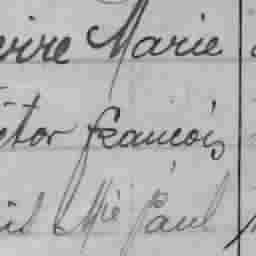 erre Marie
ctor françois
is Mie Paul